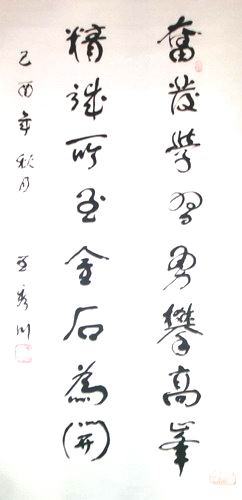 奮發學習勇攀高峯
精誠所至金石為開
己酉年秋月
秀川